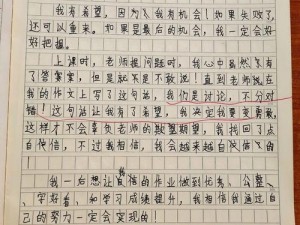 我有希望，因为我有机会！如果失败了，
还可以重来。如果是最后的机会，我一定会好
好把握。
上课时，老师提问题时，我心中虽然有
了答案，但是就不是不敢说！直到老师说在
我的作文上写了这句话，我们是讨论，不分对
错！这句话让我有了希望，我决定我要变勇敢，
这样才不会辜负老师的期望，我找回了点
自信，不过我相信，我会越来越自信的
我一后想让自的作业做到优秀、工整、
好看，和学习成绩提升，我相信我通过自
己的努力一定会实现的！